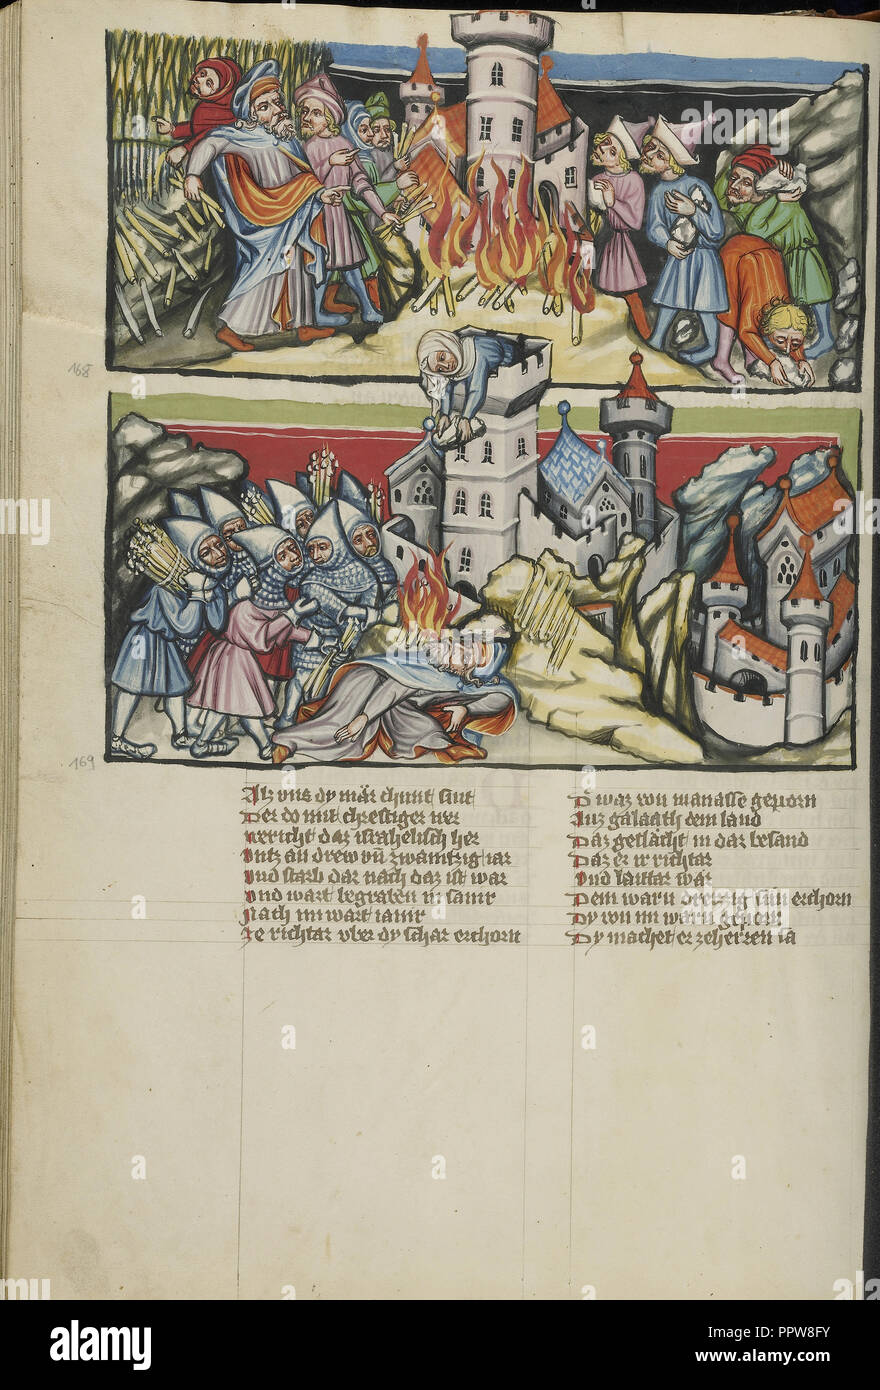 168
169
Alz uns dy mär chunt sint
Der do mit chreftiger wer
Bericht daz israhelisch her
Untz an drew vn zwaintzig iar
Und starb dar nach daz ist war
Und wart begraben in samir
Nach im wart iamr
Ze richtar vber dy schar erchorn
D waz von manasse geporn
Auz galaath dem land
Daz geslächt in dar besand
Daz er ir richtar
Und lauttar war
Dem warn dreizig sun erchorn
Dy von im warn geporn
Dy machet er ze herren sa
a alamy stock photo
alamy
Image ID: PPW8FY
www.alamy.com